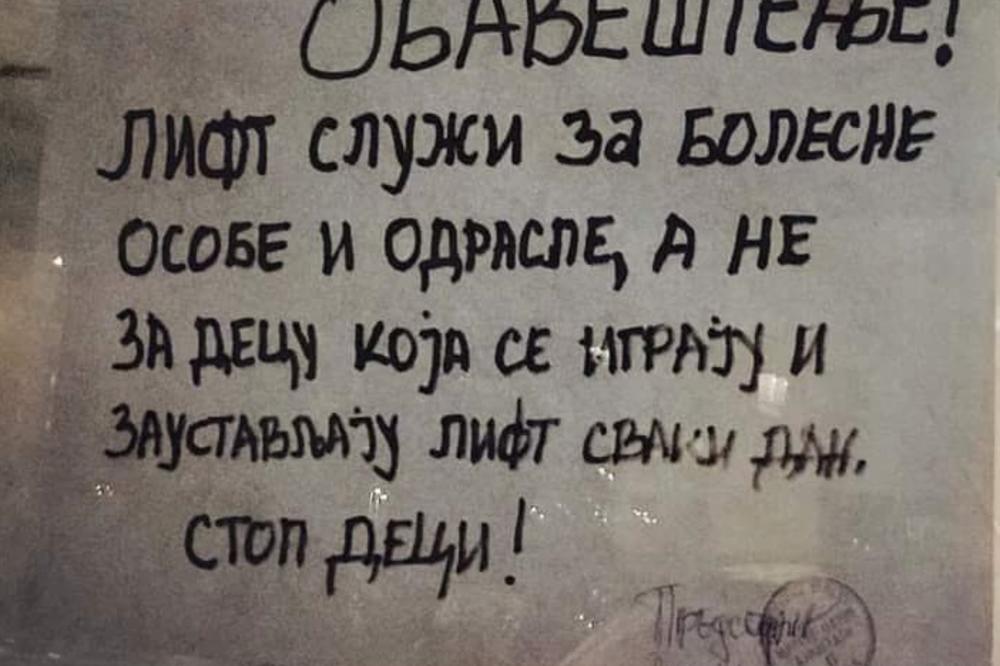 ОБАВЕШТЕЊЕ!
ЛИФТ СЛУЖИ ЗА БОЛЕСНЕ
ОСОБЕ И ОДРАСЛЕ, А НЕ
ЗА ДЕЦУ КОЈА СЕ ИГРАЈУ И
ЗАУСТАВЉАЈУ ЛИФТ СВАКИ ДАН.
СТОП ДЕЦИ!